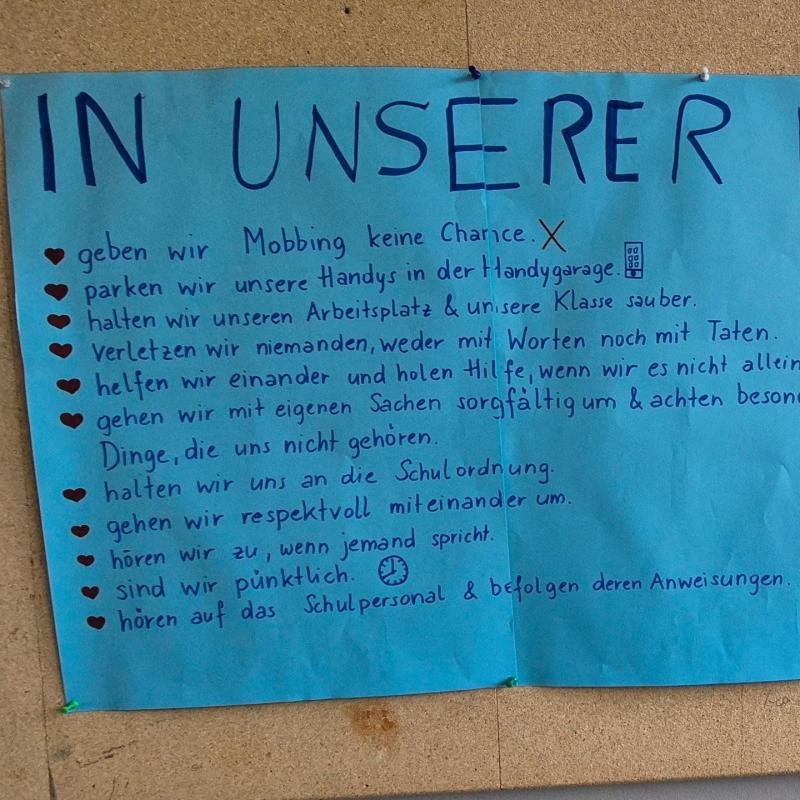 IN UNSERER
geben wir Mobbing keine Chance.
parken wir unsere Handys in der Handygarage.
halten wir unseren Arbeitsplatz & unsere Klasse sauber.
verletzen wir niemanden, weder mit Worten noch mit Taten.
helfen wir einander und holen Hilfe, wenn wir es nicht allein
gehen wir mit eigenen Sachen sorgfältig um & achten beson
Dinge, die uns nicht gehören.
halten wir uns an die Schulordnung.
gehen wir respektvoll miteinander um.
hören wir zu, wenn jemand spricht.
sind wir pünktlich.
hören auf das Schulpersonal & befolgen deren Anweisungen.